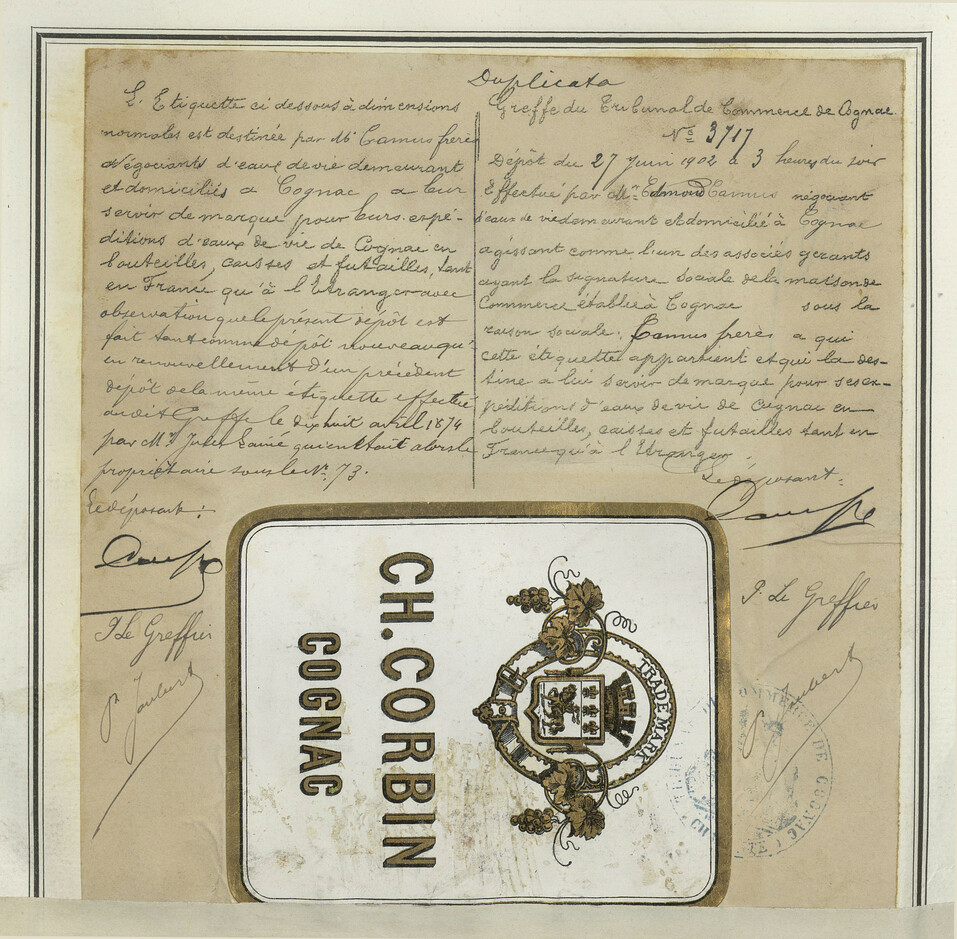 Duplicata
L. Etiquette ci dessous à dimensions
normales est destinée par Mr Camus frères
négociants d'eaux de vie demeurant
et domiciliés à Cognac, à leur
servir de marque pour leurs expé-
ditions d'eaux de vie de Cognac en
bouteilles, caisses et futailles, tant
en France qu'à l'Etranger avec
observation que le présent dépôt est
fait tant comme dépôt nouveau qu'
en renouvellement d'un précédent
dépôt de la même étiquette effectué
au dit Greffe le dix huit avril 1874
par Mr Jules Lainé qui en était alors le
propriétaire sous le No 73.
Le déposant:
P. Le Greffier
P Joubert
Greffe du Tribunal de Commerce de Cognac.
No 3717
Dépôt du 27 Juin 1902 à 3 heures du soir
Effectué par Mr Edmond Camus négociant
d'eaux de vie demeurant et domicilié à Cognac
agissant comme l'un des associés gérants
ayant la signature sociale de la maison de
Commerce établie à Cognac sous la
raison sociale: Camus frères à qui
cette étiquette appartient et qui la des-
tine à lui servir de marque pour ses ex-
péditions d'eaux de vie de Cognac en
bouteilles, caisses et futailles tant en
France qu'à l'Etranger.
Le déposant:
P. Le Greffier
P Joubert
TRADE MARK
CH. CORBIN
COGNAC
COMMERCE DE COGNAC